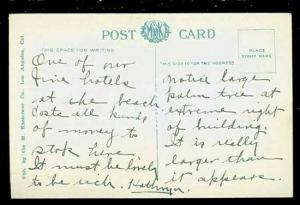 POST CARD
M.K.
PLACE
STAMP HERE
THIS SPACE FOR WRITING
THIS SIDE IS FOR THE ADDRESS
Pub. by the M. Kashower Co., Los Angeles, Cal.
One of our
fine hotels
at the beach
Costs all kinds
of money to
stop here
It must be lovely
to be rich. Kathryn.
notice large
palm tree at
extreme right
of building.
It is really
larger than
it appears.